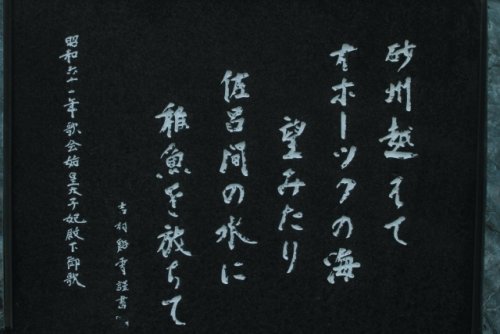 砂州越えて
オホーツクの海
望みたり
佐呂間の水に
稚魚を放ちて
昭和六十一年歌会始皇太子妃殿下御歌